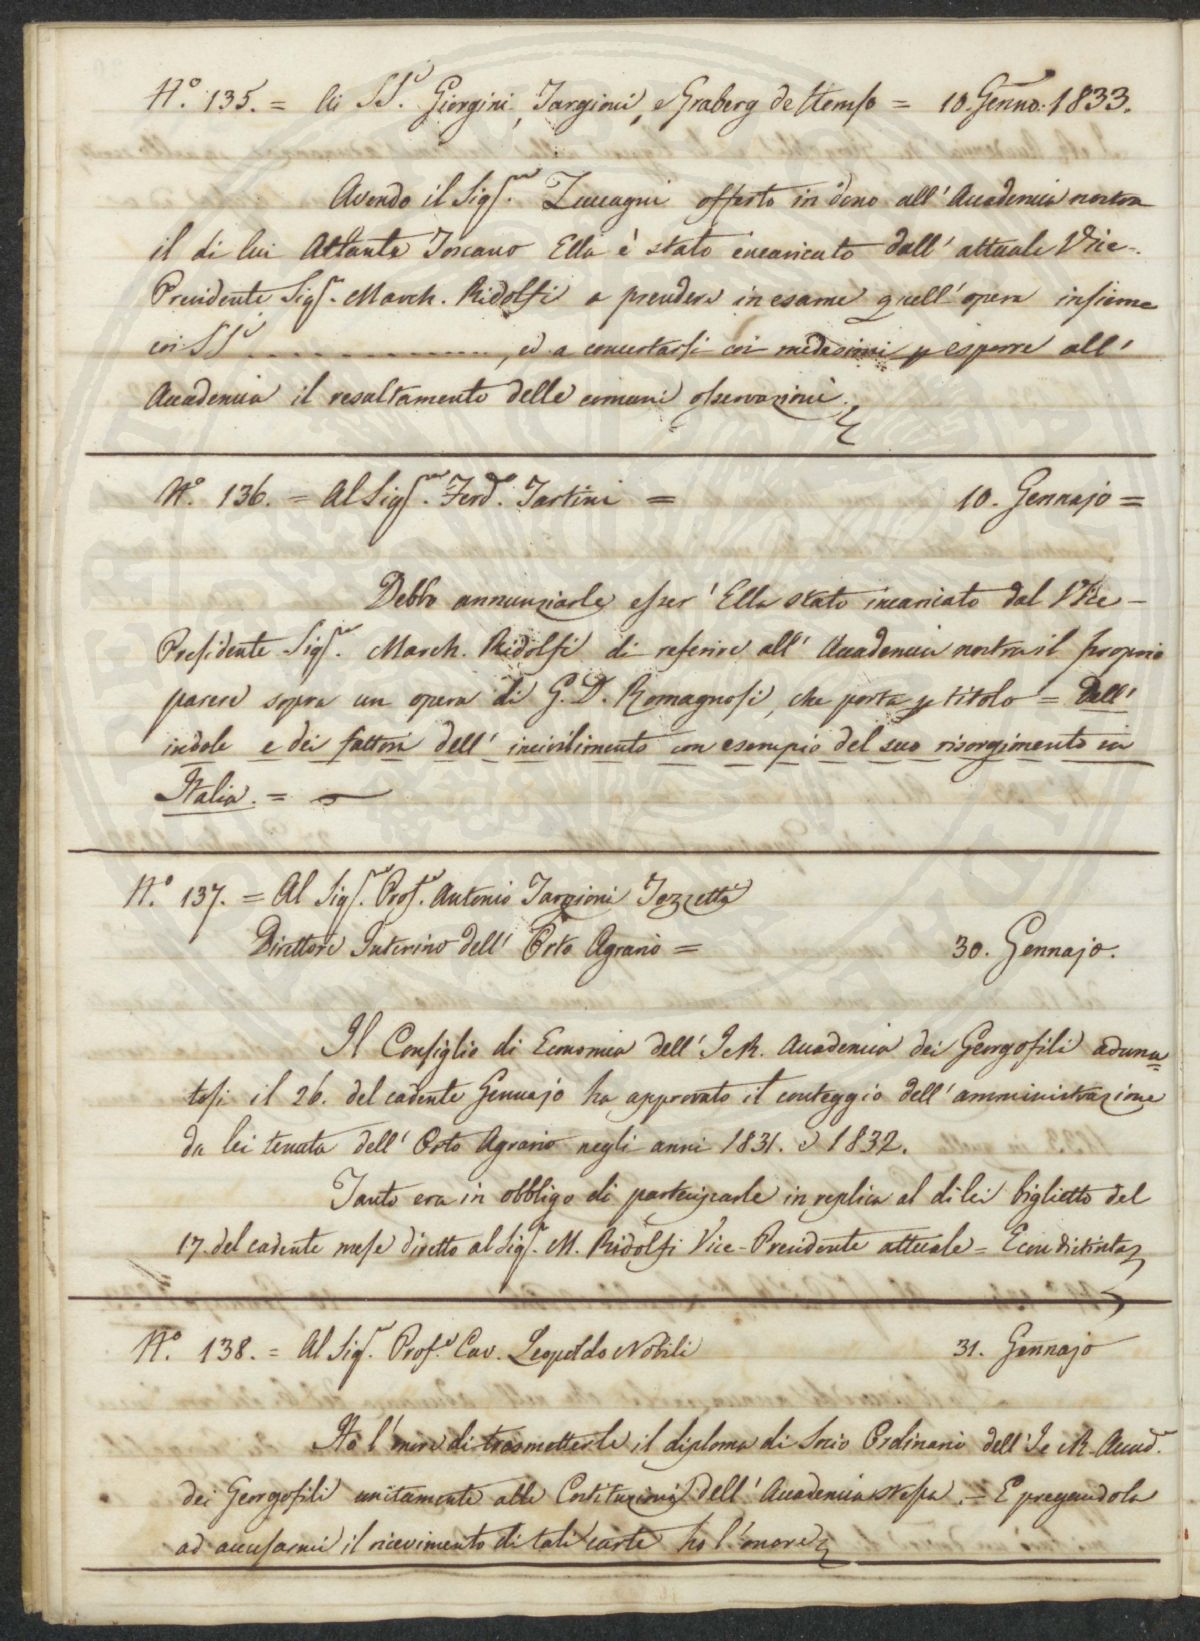 N.° 135. = Ai SS.ri Giorgini, Targioni, e Graberg de Hemso = 10. Genno. 1833.
Avendo il Sig.r Zuccagni offerto in dono all' Accademia nostra
il di lui Atlante Toscano Ella è stato incaricato dall' attuale Vice-
Presidente Sig.r March. Ridolfi a prendere in esame quell' opera insieme
coi SS.ri . . . . . . . . . . . . . . . . , ed a concertarsi coi medesimi p esporre all'
Accademia il resultamento delle comuni osservazioni.
N.° 136. = Al Sig.r Ferd.o Tartini = 10. Gennajo =
Debbo annunziarle esser' Ella stato incaricato dal Vice-
Presidente Sig.r March. Ridolfi di referire all' Accademia nostra il proprio
parere sopra un opera di G. D. Romagnosi, che porta p titolo = Dell'
indole e dei fattori dell' incivilimento con esempio del suo risorgimento in
Italia. =
N.° 137. = Al Sig.r Prof.r Antonio Targioni Tozzetti
Direttore Interino dell' Orto Agrario = 30. Gennajo.
Il Consiglio di Economia dell' I. e R. Accademia dei Georgofili aduna=
tosi il 26. del cadente Gennajo ha approvato il conteggio dell' amministrazione
da lei tenuta dell' Orto Agrario negli anni 1831. e 1832.
Tanto era in obbligo di parteciparle in replica al di lei biglietto del
17. del cadente mese diretto al Sig.r M. Ridolfi Vice-Presidente attuale = E con distinta
N.° 138. = Al Sig.r Prof.e Cav. Leopoldo Nobili 31. Gennajo
Ho l' onore di trasmetterle il diploma di Socio Ordinario dell' I. e R. Accad.a
dei Georgofili unitamente alle Costituzioni dell' Accademia stessa. = E pregandola
ad accusarmi il ricevimento di tali carte ho l' onore